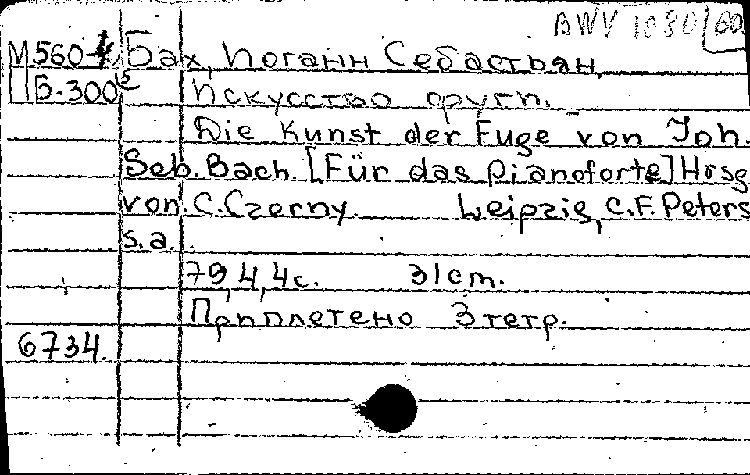 BWV 1080
М560-4 Бах, Иоганн Себастьян.
Б-300 Искусство фуги.
Die Kunst der Fuge von Joh.
Seb. Bach. [Für das Pianoforte] Hrsg
von C. Czerny. Leipzig, C.F. Peters
s.a.
79,4,4с. 31cm.
Приплетено 3 тетр.
6734.